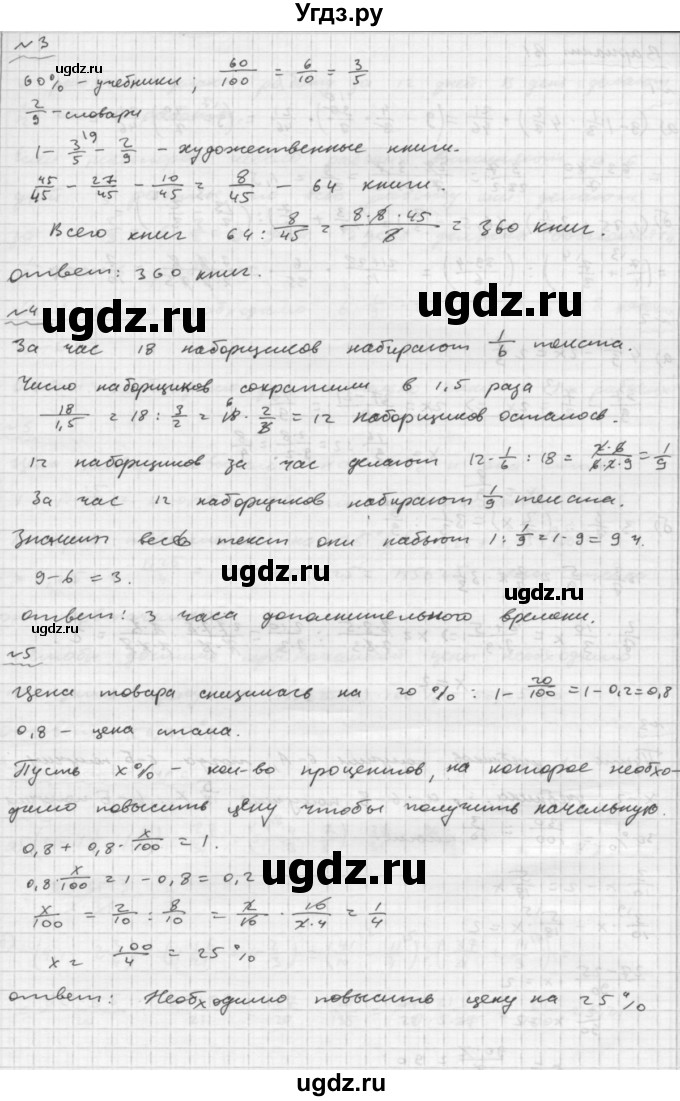 Угдз.ру
№3
60% - учебники; 60/100 = 6/10 = 3/5
ugdz.ru ugdz.ru
2/9 - словари
1 - 3/5 - 2/9 - художественные книги.
45/45 - 27/45 - 10/45 = 8/45 - 64 книги.
Всего книг 64 : 8/45 = 8·8·45/8 = 360 книг.
ответ: 360 книг.
ugdz.ru ugdz.ru
№4
За час 18 наборщиков набирают 1/6 текста.
ugdz.ru
Число наборщиков сократили в 1,5 раза
18/1,5 = 18 : 3/2 = 18 · 2/3 = 12 наборщиков осталось.
12 наборщиков за час делают 12·1/6 : 18 = 2·6/6·2·9 = 1/9
За час 12 наборщиков набирают 1/9 текста.
Значит весь текст они набьют 1 : 1/9 = 1·9 = 9 ч.
9 - 6 = 3.
ugdz.ru ugdz.ru
ответ: 3 часа дополнительного времени.
ugdz.ru
№5
Цена товара снизилась на 20% : 1 - 20/100 = 1 - 0,2 = 0,8
0,8 - цена стала.
ugdz.ru
Пусть x% - кол-во процентов, на которое необхо-
димо повысить цену чтобы получить начальную.
0,8 + 0,8 · x/100 = 1.
ugdz.ru ugdz.ru
0,8 · x/100 = 1 - 0,8 = 0,2
x/100 = 2/10 : 8/10 = 2/10 · 10/2·4 = 1/4
x = 100/4 = 25%
ответ: Необходимо повысить цену на 25%
ugdz.ru
ugdz.ru